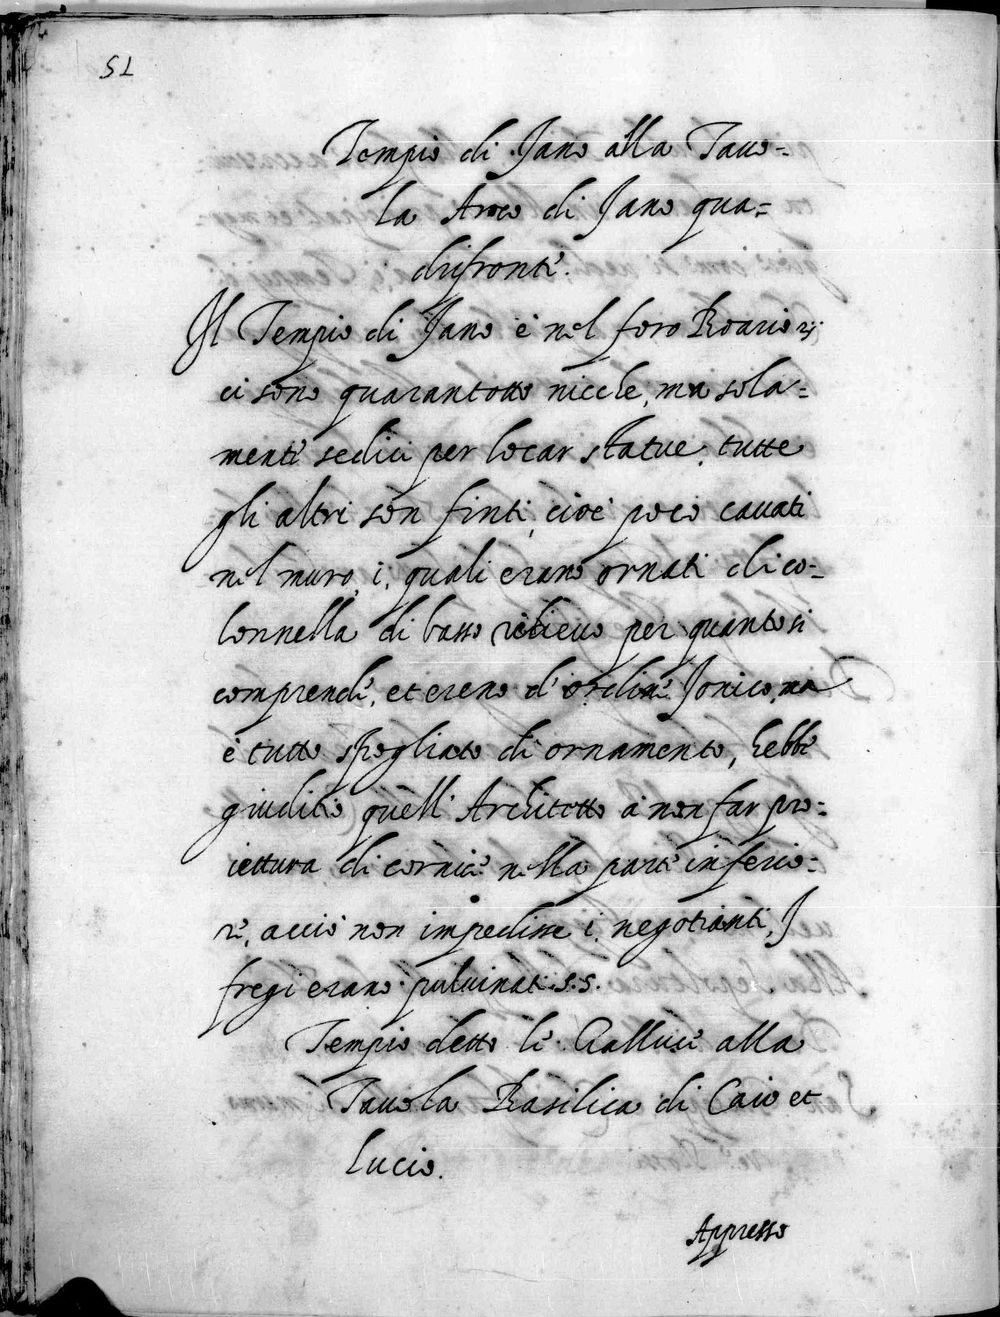 52
Tempio di Jano alla Tauo=
la Arco di Jano qua=
drifronte.
Il Tempio di Jano è nel foro Boario
ci sono quarantotto nicche, ma sola=
mente sedici per locar statue, tutte
gli altri son finti, cioè poco cauati
nel muro, i, quali erano ornati di co=
lonnella di basso relieuo per quanto si
comprende, et ereno d'ordine Jonico, ma
è tutto spogliato di ornamento, hebbe
giuditio quell'Architetto à non far pro=
iettura di cornice nella parte inferio=
re, acciò non impedisse i, negotianti, I
fregi erano puluinati .s.s.
Tempio detto le Galluce alla
Tauola Basilica di Caio et
Lucio.
Appresso